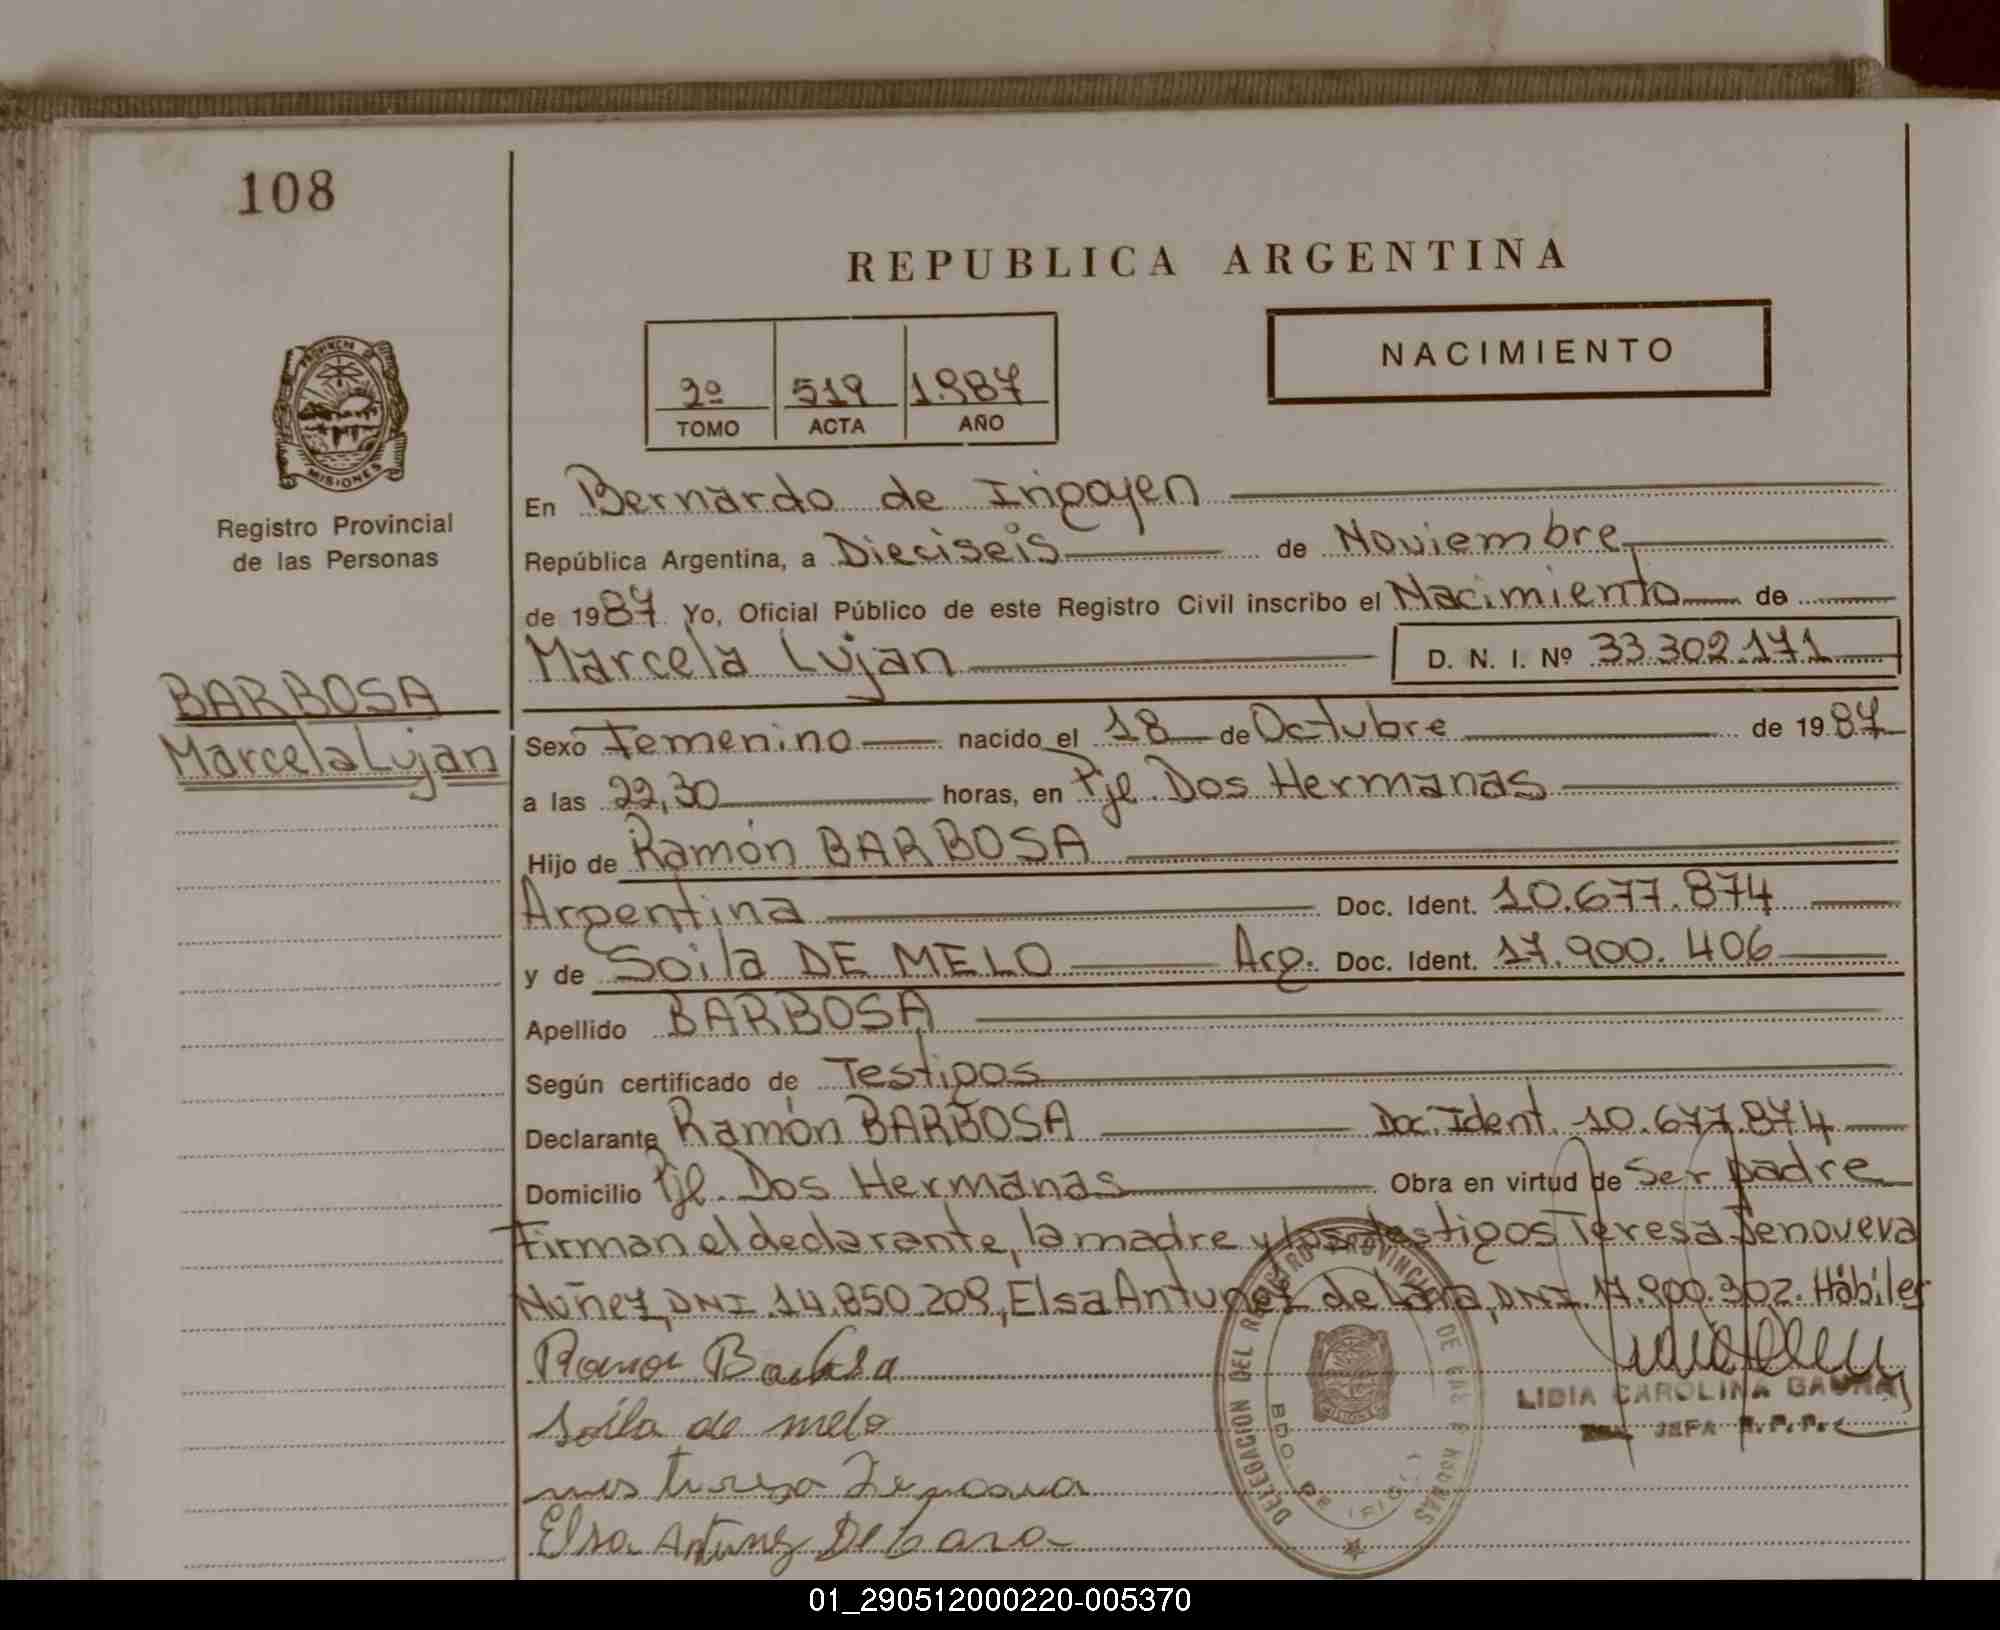 108
REPUBLICA ARGENTINA
NACIMIENTO
2º 519 1.987
TOMO ACTA AÑO
PROVINCIA DE
MISIONES
Registro Provincial
de las Personas
En Bernardo de Irigoyen
República Argentina, a Dieciseis de Noviembre
de 1987 Yo, Oficial Público de este Registro Civil inscribo el Nacimiento de
Marcela Lujan D. N. I. Nº 33.302.171
BARBOSA
Marcela Lujan
Sexo Femenino nacido el 18 de Octubre de 1987
a las 22,30 horas, en Pje. Dos Hermanas
Hijo de Ramón BARBOSA
Argentina Doc. Ident. 10.677.874
y de Soila DE MELO Arg. Doc. Ident. 17.900.406
Apellido BARBOSA
Según certificado de Testigos
Declarante Ramón BARBOSA Doc. Ident. 10.677.874
Domicilio Pje. Dos Hermanas Obra en virtud de Ser padre
Firman el declarante, la madre y los testigos Teresa Jenoveva
Núñez, DNI.14.850.209, Elsa Antunez de Lara, DNI.17.900.302. Hábiles
Ramon Barbosa
Soila de melo
teresa
Elsa Antunez De Lara
LIDIA CAROLINA
JEFA R.P.P.
DELEGACION DEL REGISTRO PROVINCIAL DE LAS PERSONAS
BDO. DE IRIGOYEN
MISIONES
01_290512000220-005370